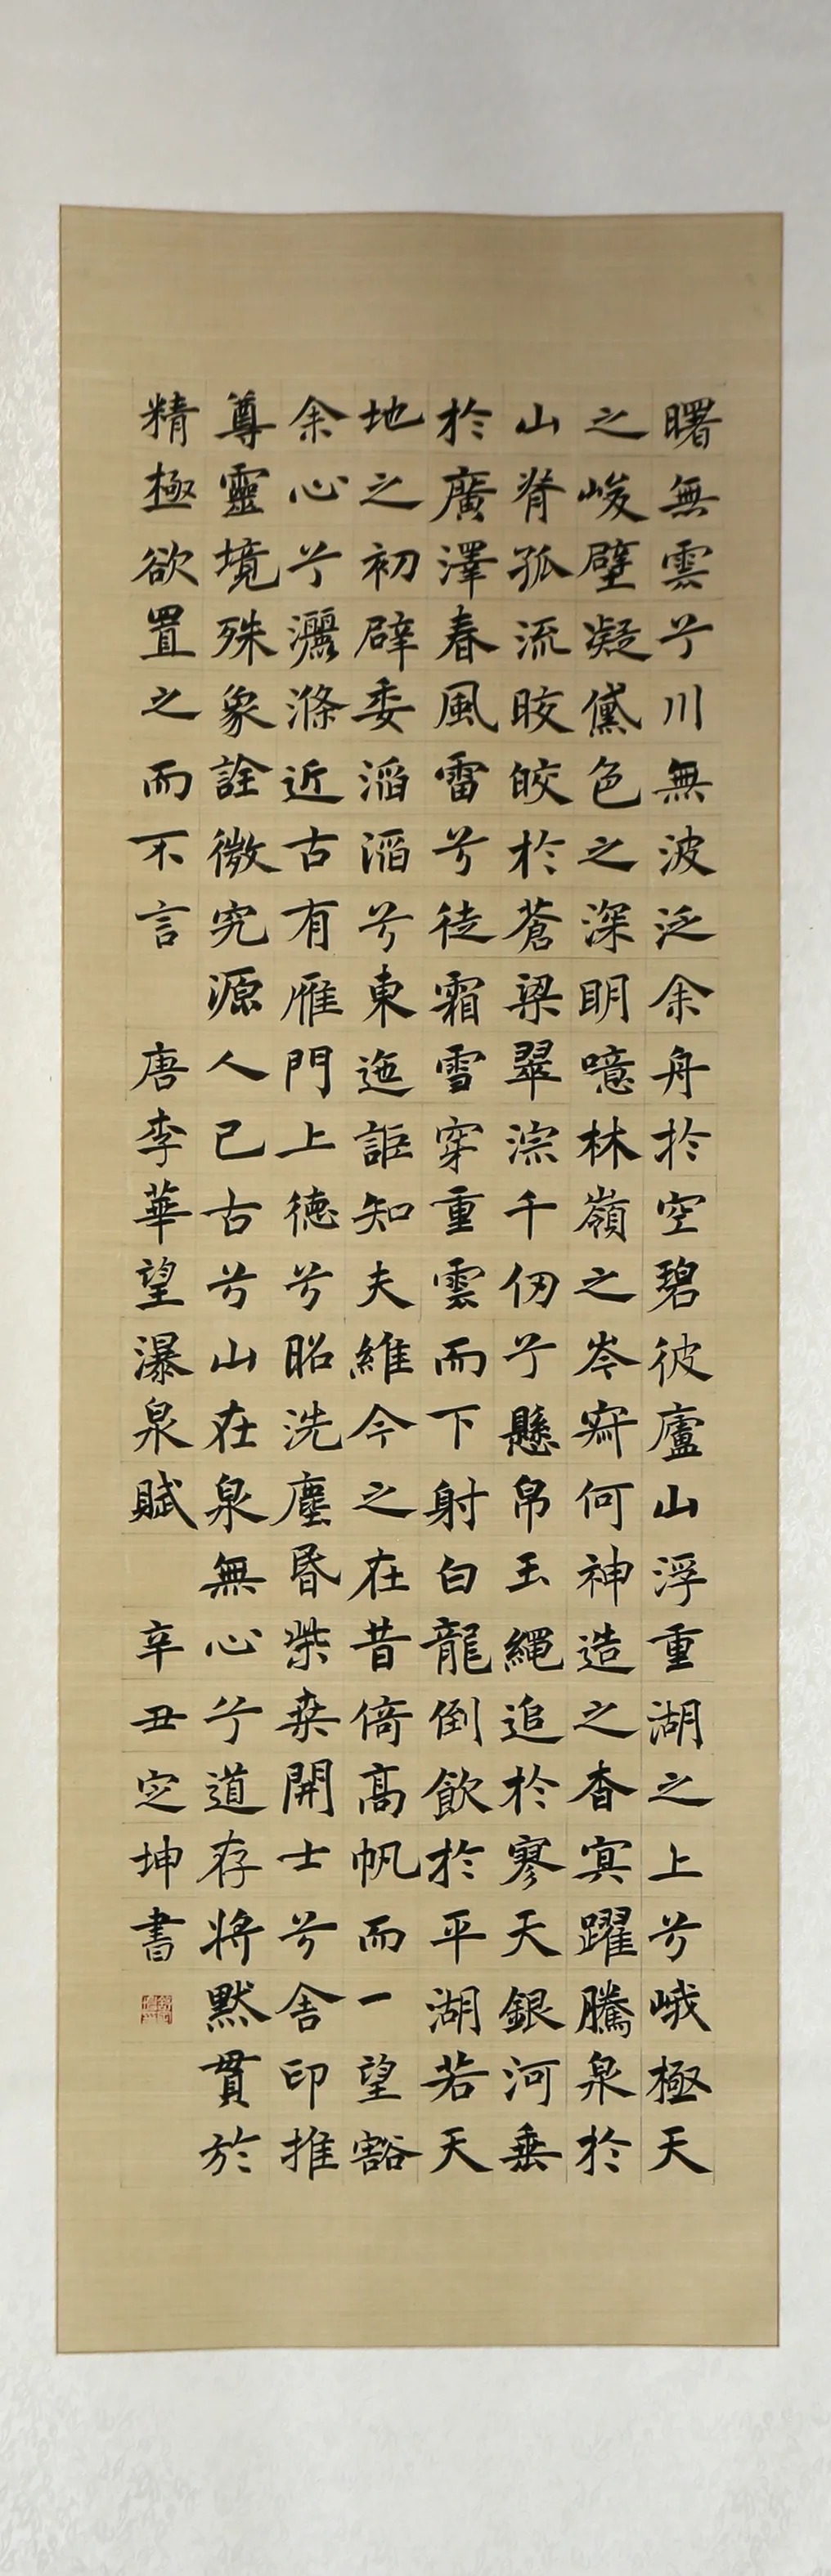 曙無雲兮川無波泛余舟於空碧彼廬山浮重湖之上兮峨極天
之峻壁凝黛色之深明噫林嶺之岑寂何神造之杳冥躍騰泉於
山脊孤流晈皎於蒼梁翠淙千仞兮懸帛玉繩追於寥天銀河垂
於廣澤春風雷兮徒霜雪穿重雲而下射白龍倒飲於平湖若天
地之初辟委滔滔兮東迤詎知夫維今之在昔倚高帆而一望豁
余心兮灑滌近古有雁門上德兮昭洗塵昏柴桑開士兮舍印推
尊靈境殊象詮微究源人已古兮山在泉無心兮道存將默貫於
精極欲置之而不言 唐李華望瀑泉賦 辛丑定坤書